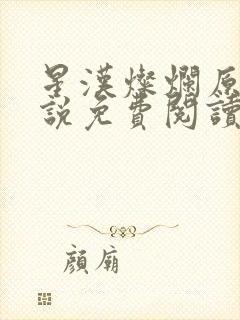 星漢燦爛原
說免費閱讀
顏廟